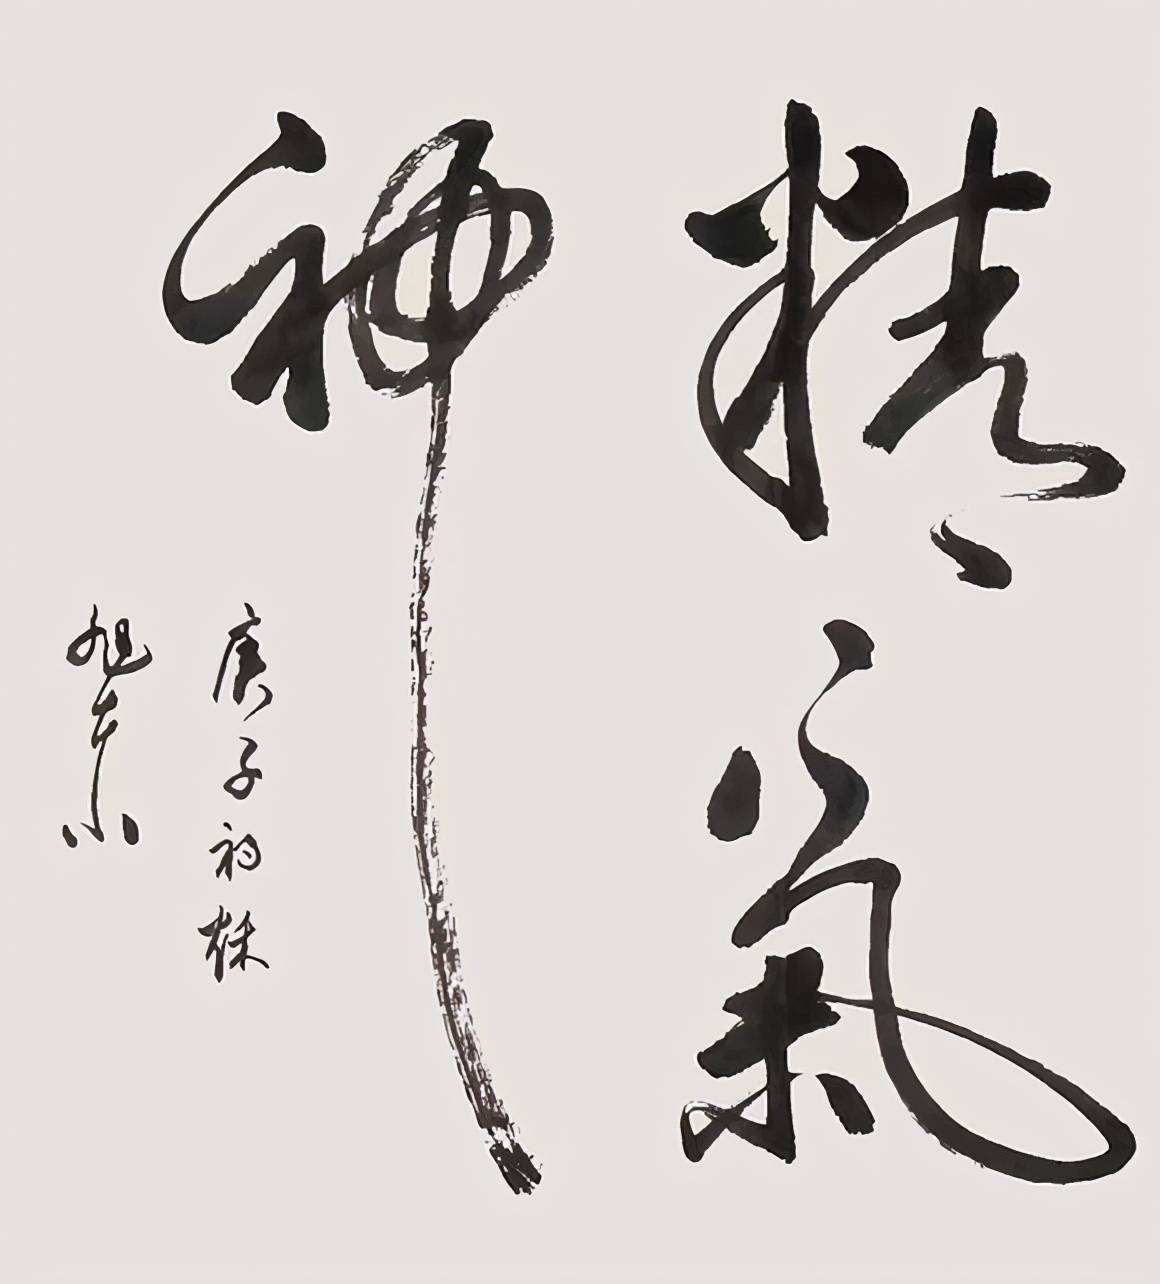 精氣
神
庚子初秌
旭东